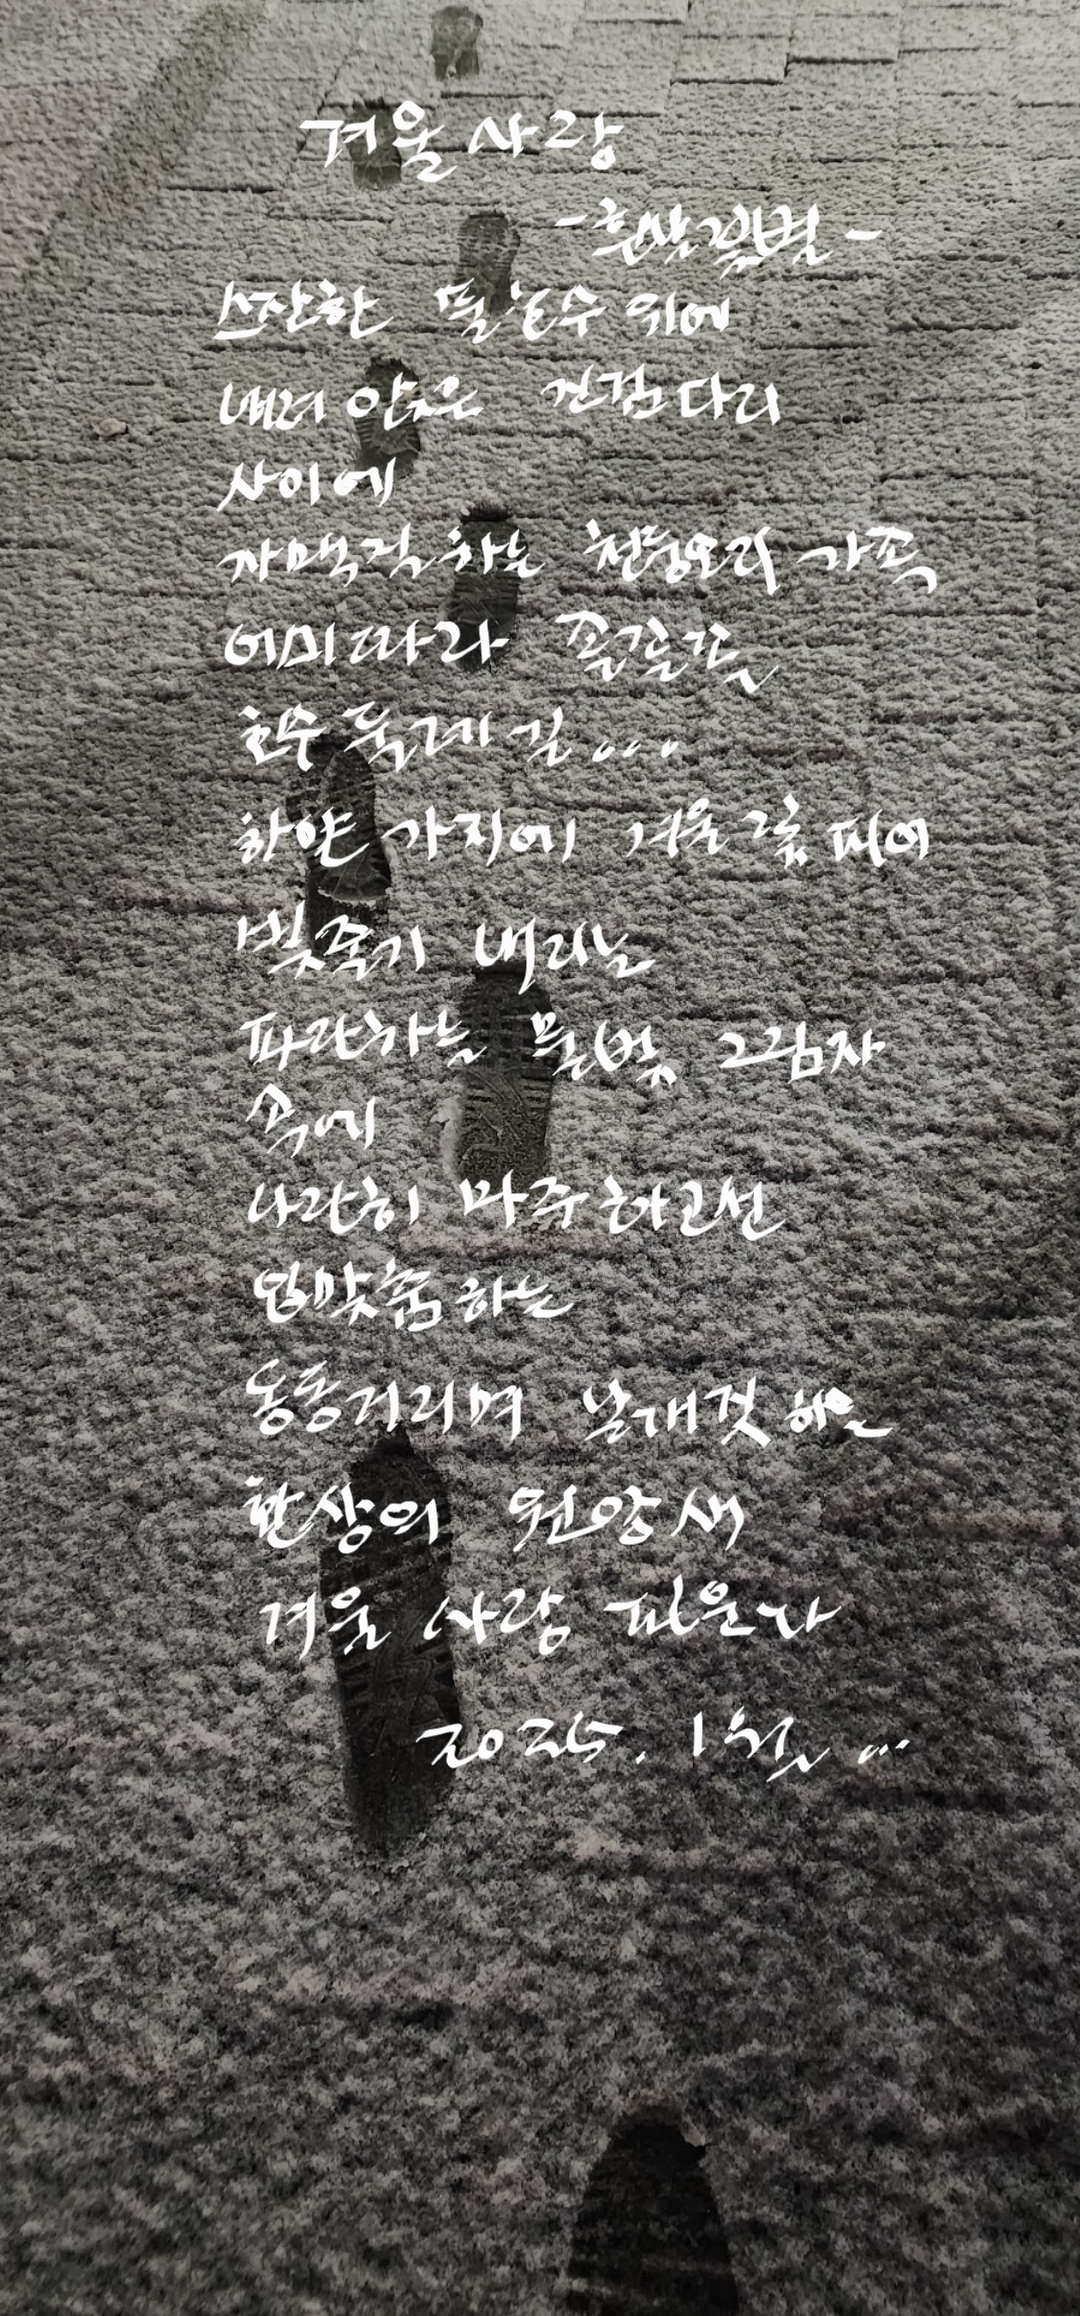 겨울 사랑
스잔한 물호수 위에
내려 앉은 징검다리
사이에
자맥질하는 청둥오리 가족
어미따라 졸졸졸
호수 둘레 길...
하얀 가지에 겨울 꽃 피어
빛줄기 내리는
파란하늘 물빛 그림자
속에
나란히 마주하고선
입맞춤하는
동동거리며 날개짓 하는
환상의 원앙새
겨울 사랑 피운다
2025. 1월...